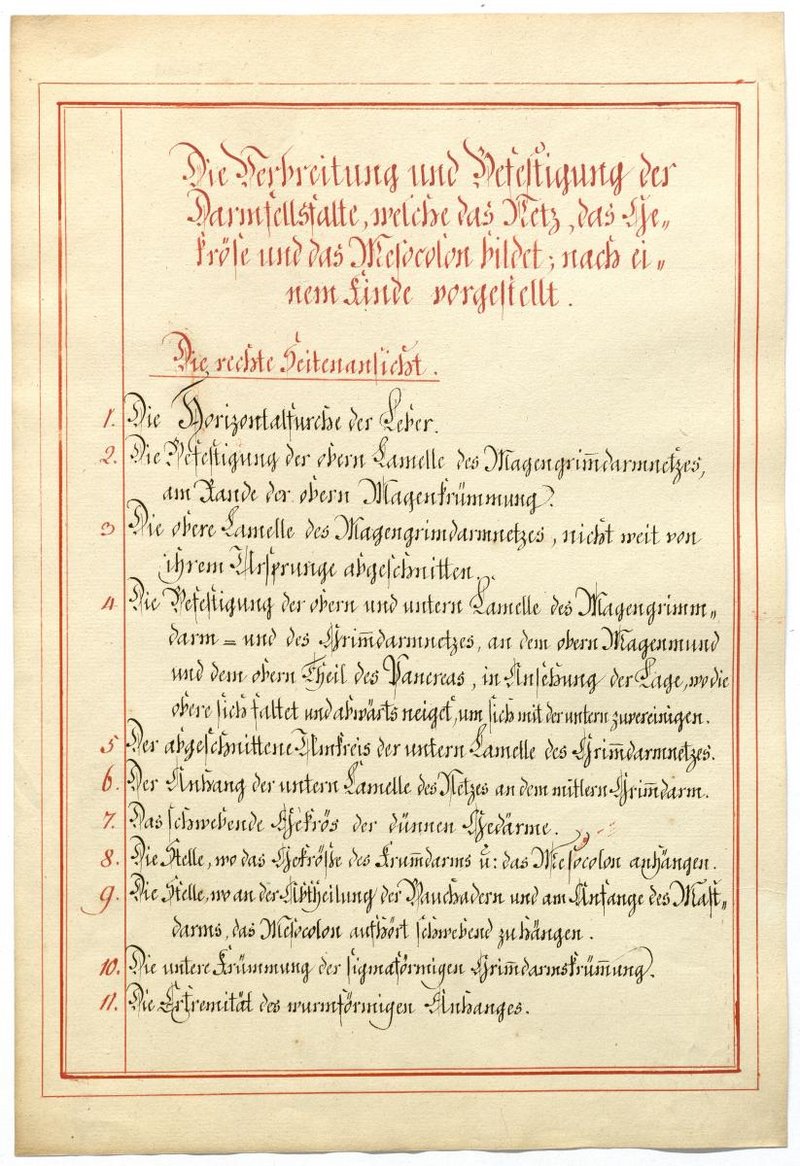 Die Verbreitung und Befestigung der
Darmfellsfalte, welche das Netz, das Ge„
kröse und das Mesocolon bildet; nach ei„
nem Kinde vorgestellt.
Die rechte Seitenansicht.
1. Die Horizontalfurche der Leber.
2. Die Befestigung der obern Lamelle des Magengrim̅darmnetzes,
am Rande der obern Magenkrümmung.
3 Die obere Lamelle des Magengrimdarmnetzes, nicht weit von
ihrem Ursprunge abgeschnitten.
4 Die Befestigung der obern und untern Lamelle des Magengrimm„
darm = und des Grim̅darmnetzes, an dem obern Magenmund
und dem obern Theil des Pancreas, in Ansehung der Lage, wo die
obere sich faltet und abwärts neiget, um sich mit der untern zuvereinigen.
5 Der abgeschnittene Umkreis der untern Lamelle des Grim̅darmnetzes.
6. Der Anhang der untern Lamelle des Netzes an dem mittlern Grim̅darm.
7. Das schwebende Gekrös der dünnen Gedärme.
8. Die Stelle, wo das Gekröße des Krum̅darms u: das Mesocolon anhängen.
9. Die Stelle, wo an der Abtheilung der Bauchadern und am Anfange des Mast„
darms, das Mesocolon aufhört schwebend zu hängen.
10. Die untere Krümmung der sigmaförmigen Grim̅darmskrüm̅ung.
11. Die Extremität des wurmförmigen Anhanges.